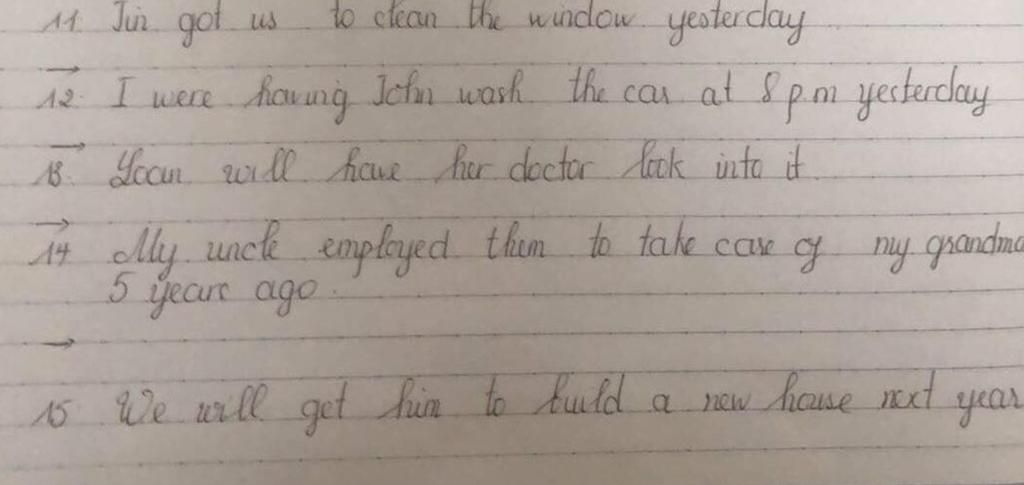 11. Jin got us to clean the window yesterday
→
12. I were having John wash the car at 8 p.m yesterday
→
13. Yoan will have her doctor look into it
→
14 My uncle employed them to take care of my grandma
5 years ago.
→
15 We will get him to build a new house next year